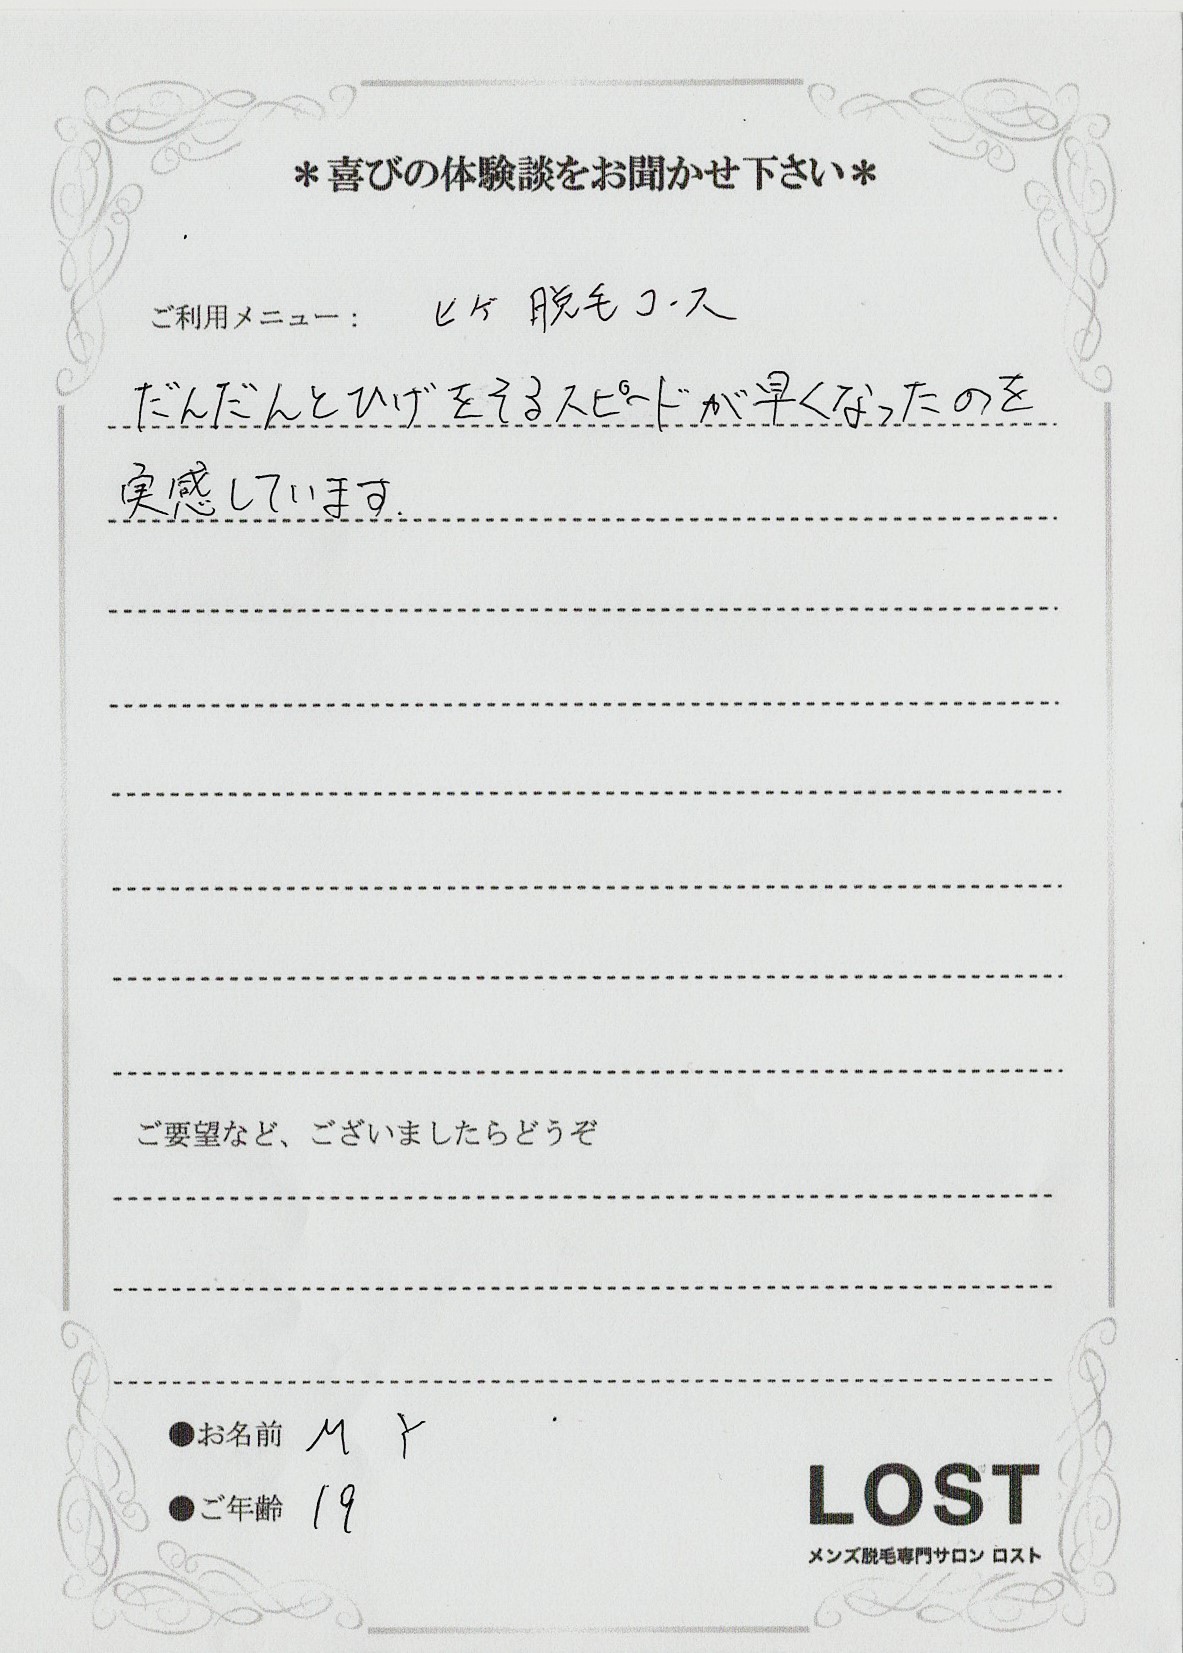 ＊喜びの体験談をお聞かせ下さい＊
ご利用メニュー： ヒゲ 脱毛コース
だんだんとひげをそるスピードが早くなったのを
実感しています.
ご要望など、ございましたらどうぞ
●お名前 M Y
●ご年齢 19
LOST
メンズ脱毛専門サロン ロスト